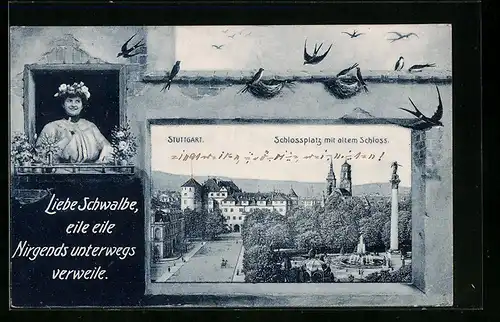 STUTTGART.
Schlossplatz mit altem Schloss.
Liebe Schwalbe,
eile eile
Nirgends unterwegs
verweile.